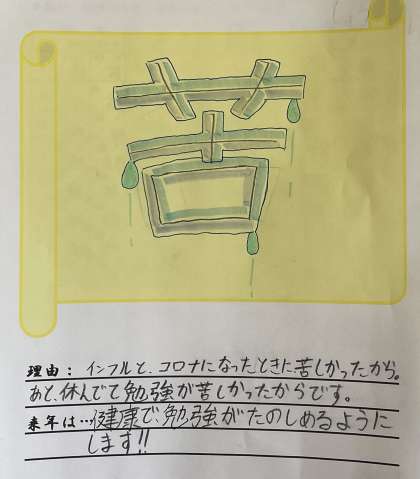 苦
理由：インフルと、コロナになったときに苦しかったから。
あと、休んでて勉強が苦しかったからです。
来年は…健康で、勉強がたのしめるように
します!!